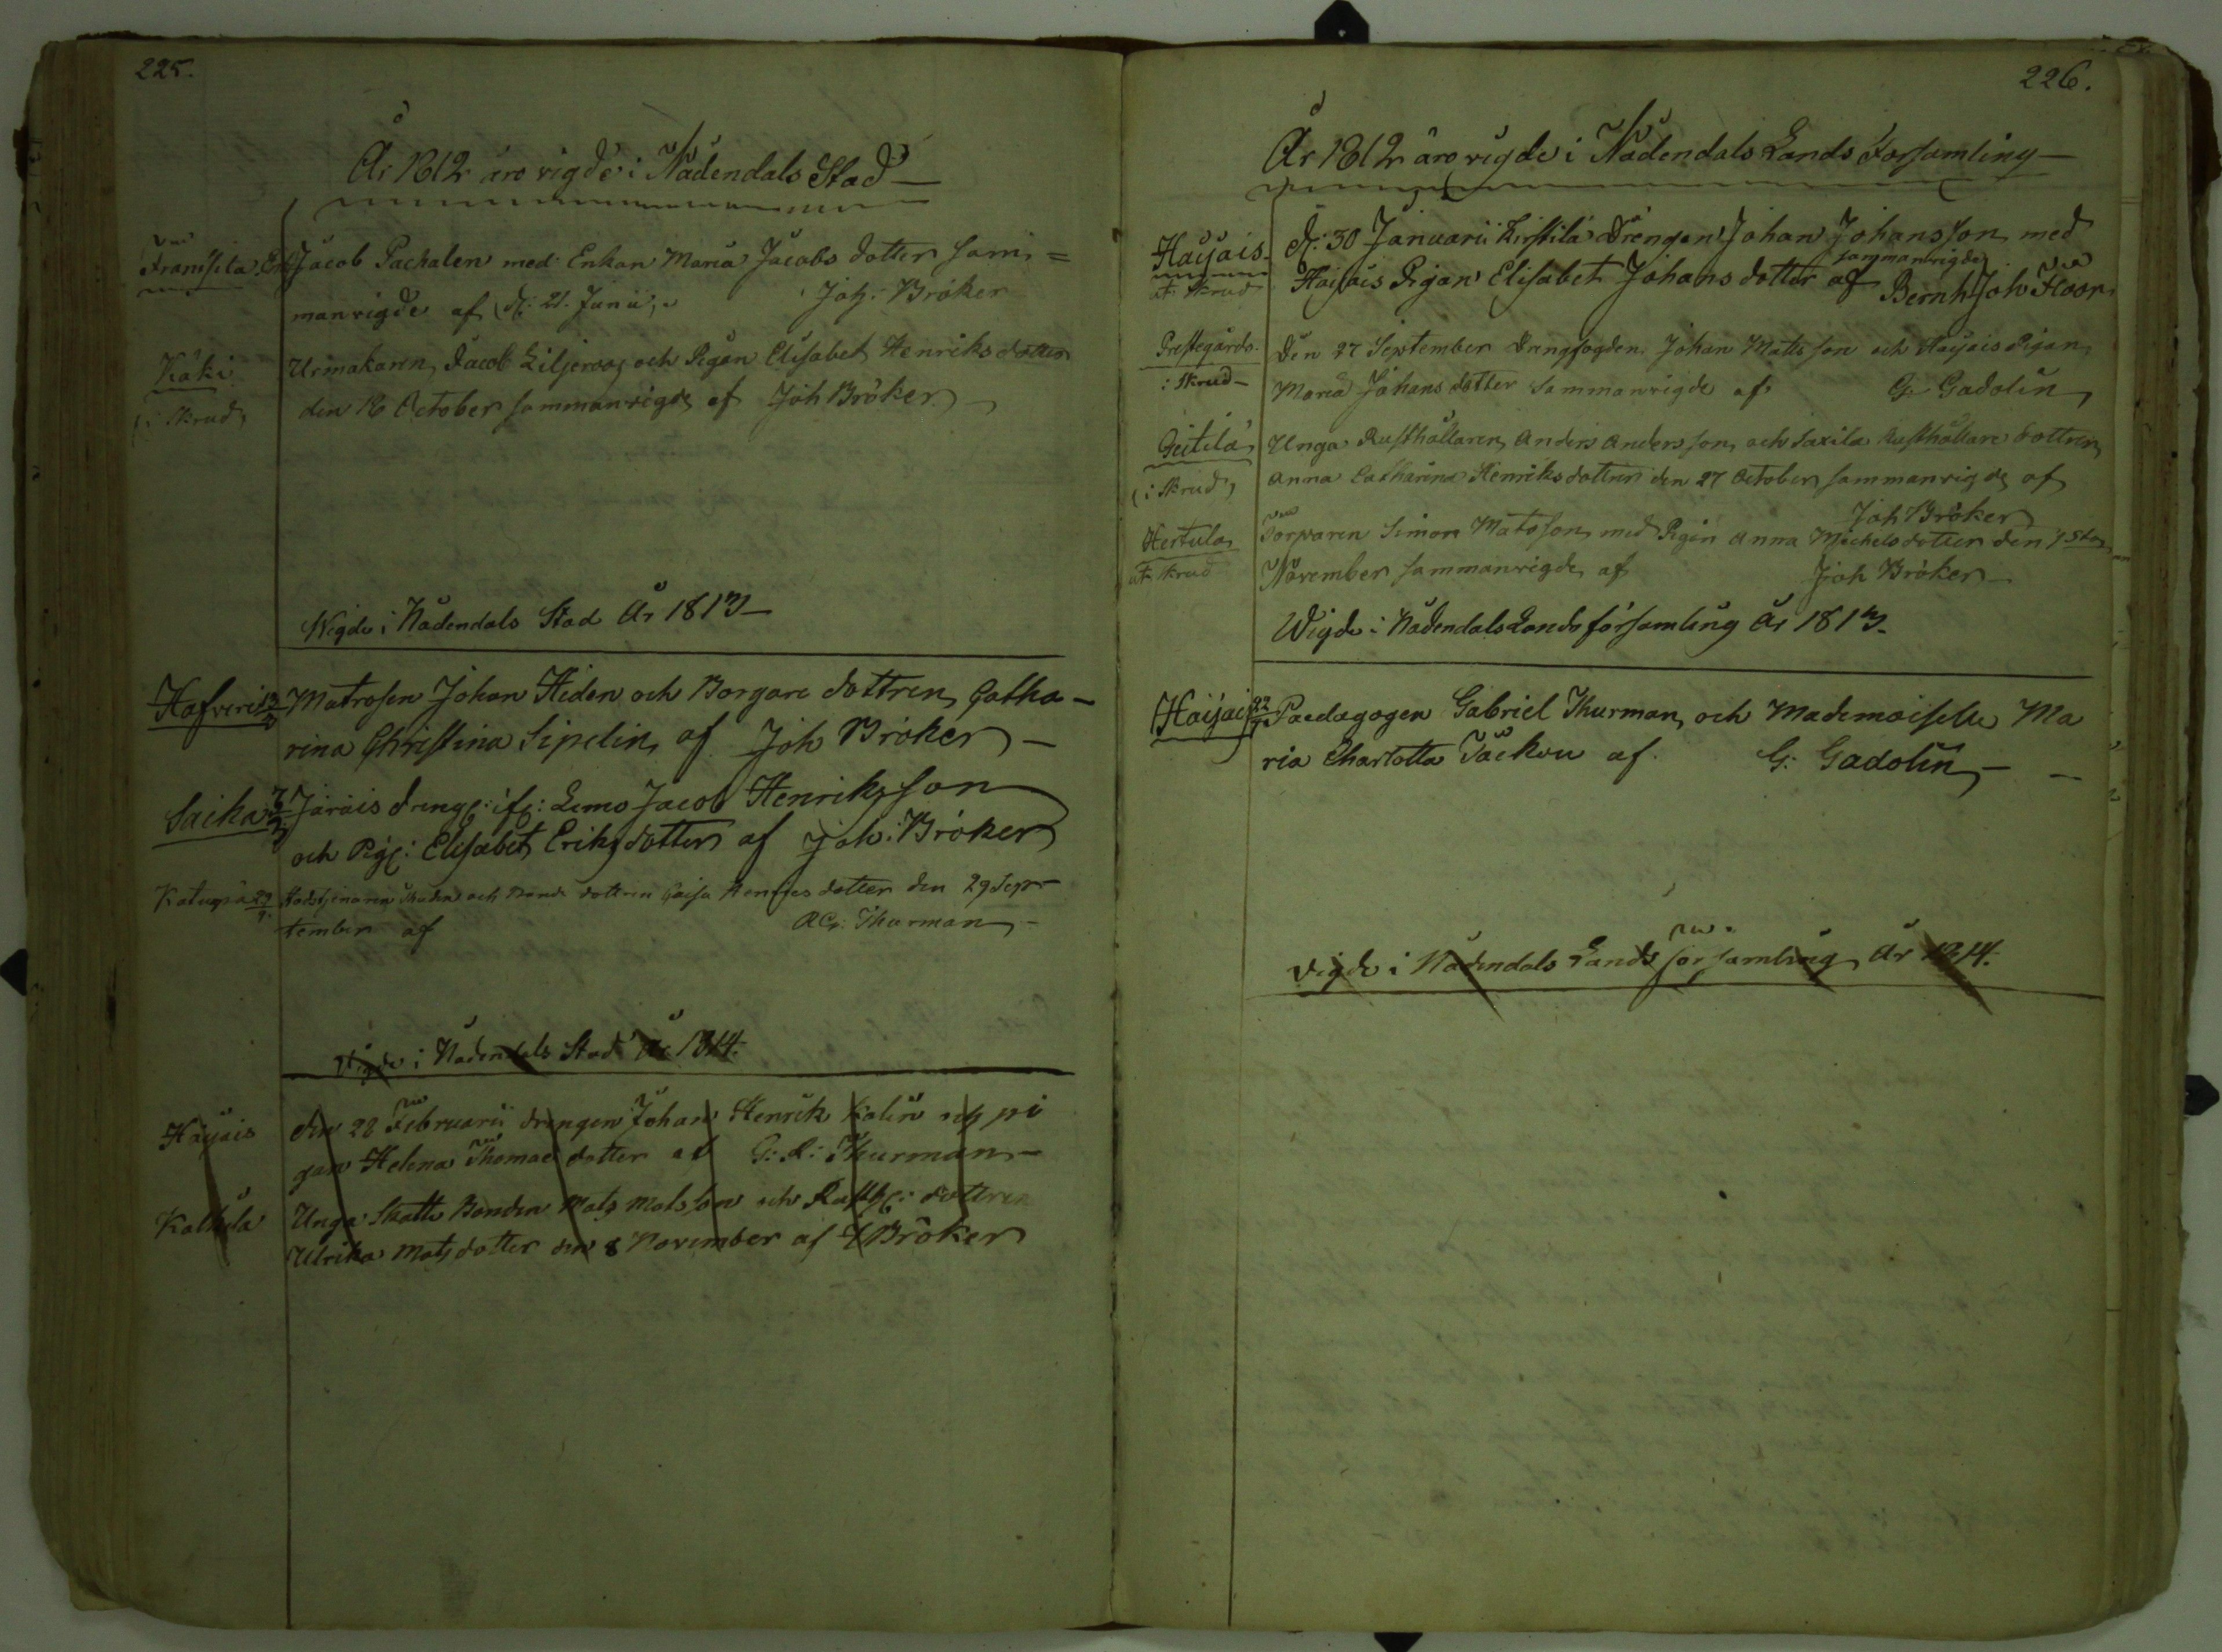 225.
År 1812 äro vigde i Nådendals Stad —
Franssila Jacob Pachalen med Enkan Maria Jacobs dotter sam =
manvigde af d: 21. Junii, Joh: Bröker
Käki Urmakaren Jacob Liljeroos och Pigan Elisabet Henriks dotter
i Skrud den 18 October sammanvigde af Joh Bröker —
Wigde i Nådendals Stad År 1813 —
Hafveri Matrosen Johan Hiden och Borgare dottren Catha –
rina Christina Sipelin af Joh Bröker —
Saika Järäis dreng: if: Lemo Jacob Henriksson
och Pig: Elisabet Eriksdotter af Joh: Bröker
Katupää 29/9 Stadstjenaren och Bonde dottren Caisa dotter den 29 Sep–
tember af Thurman –
Wigde i Nådendals Stad År 1814.
Haijais den 22 Februarii drengen Johan Henrik Kalin och pi
gan Helena Thomae dotter af G: R: Thurman –
Kalkila Unga Skatte Bonden Mats Matsson och Rusth: dottren
Ulrika Matsdotter den 8 November af J Bröker
226.
År 1812 äro vigde i Nådendals Lands Församling —
Haijais. d: 30 Januarii Kirstilä Drengen Johan Johansson med
at: Skrud Haijais Pigan Elisabet Johans dotter sammanvigde af Bernh Joh Floor
Prestegårds. Den 27 September Drengfogden Johan Matts son och Haijais Pigan
i Skrud – Maria Johans dotter sammanvigde af G. Gadolin
Geitilä Unga Rusthållaren Anders Andersson och Saxila Rusthållare dottren
(i Skrud) Anna Catharina Henriksdotter den 27 October sammanvigde af
Joh Bröker
Hertula Torparen Simon Matsson med Pigan Anna Michelsdotter den 1sta
at Skrud November sammanvigde af Joh Bröker —
Wigde i Nådendals Lands församling År 1813.
Haijais Paedagogen Gabriel Thurman och Mademoiselle Ma
ria Charlotta Täckou af G: Gadolin – –
Vigde i Nådendals Lands församling År 1814.